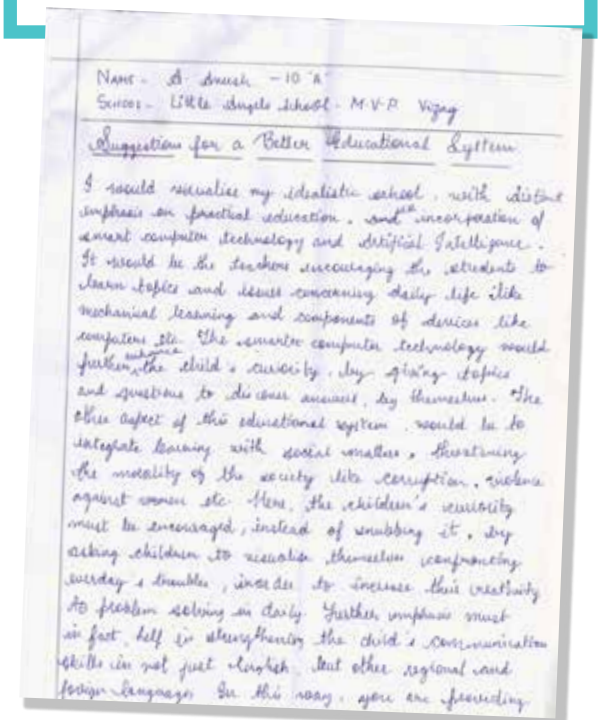 NAME - A. Anush - 10 'A'
SCHOOL - Little Angels School - M.V.P. Vizag
Suggestions for a Better Educational System
I would visualise my idealistic school, with distinct
emphasis on practical education, and incorporation of
smart computer technology and Artificial Intelligence.
It would be the teachers encouraging the students to
learn topics and issues concerning daily life like
mechanical learning and components of devices like
computers etc. The smarter computer technology would
further enhance the child's curiosity, by giving topics
and questions to discover answers, by themselves. The
other aspect of this educational system, would be to
integrate learning with social matters, threatening
the morality of the society like corruption, violence
against women etc. Here, the children's curiosity
must be encouraged, instead of snubbing it, by
asking children to visualise themselves confronting
everyday's troubles, inorder to increase their creativity
to problem solving in daily. Further emphasis must
in fact, help in strengthening the child's communication
skills in not just English, but other regional and
foreign languages. In this way, you are providing